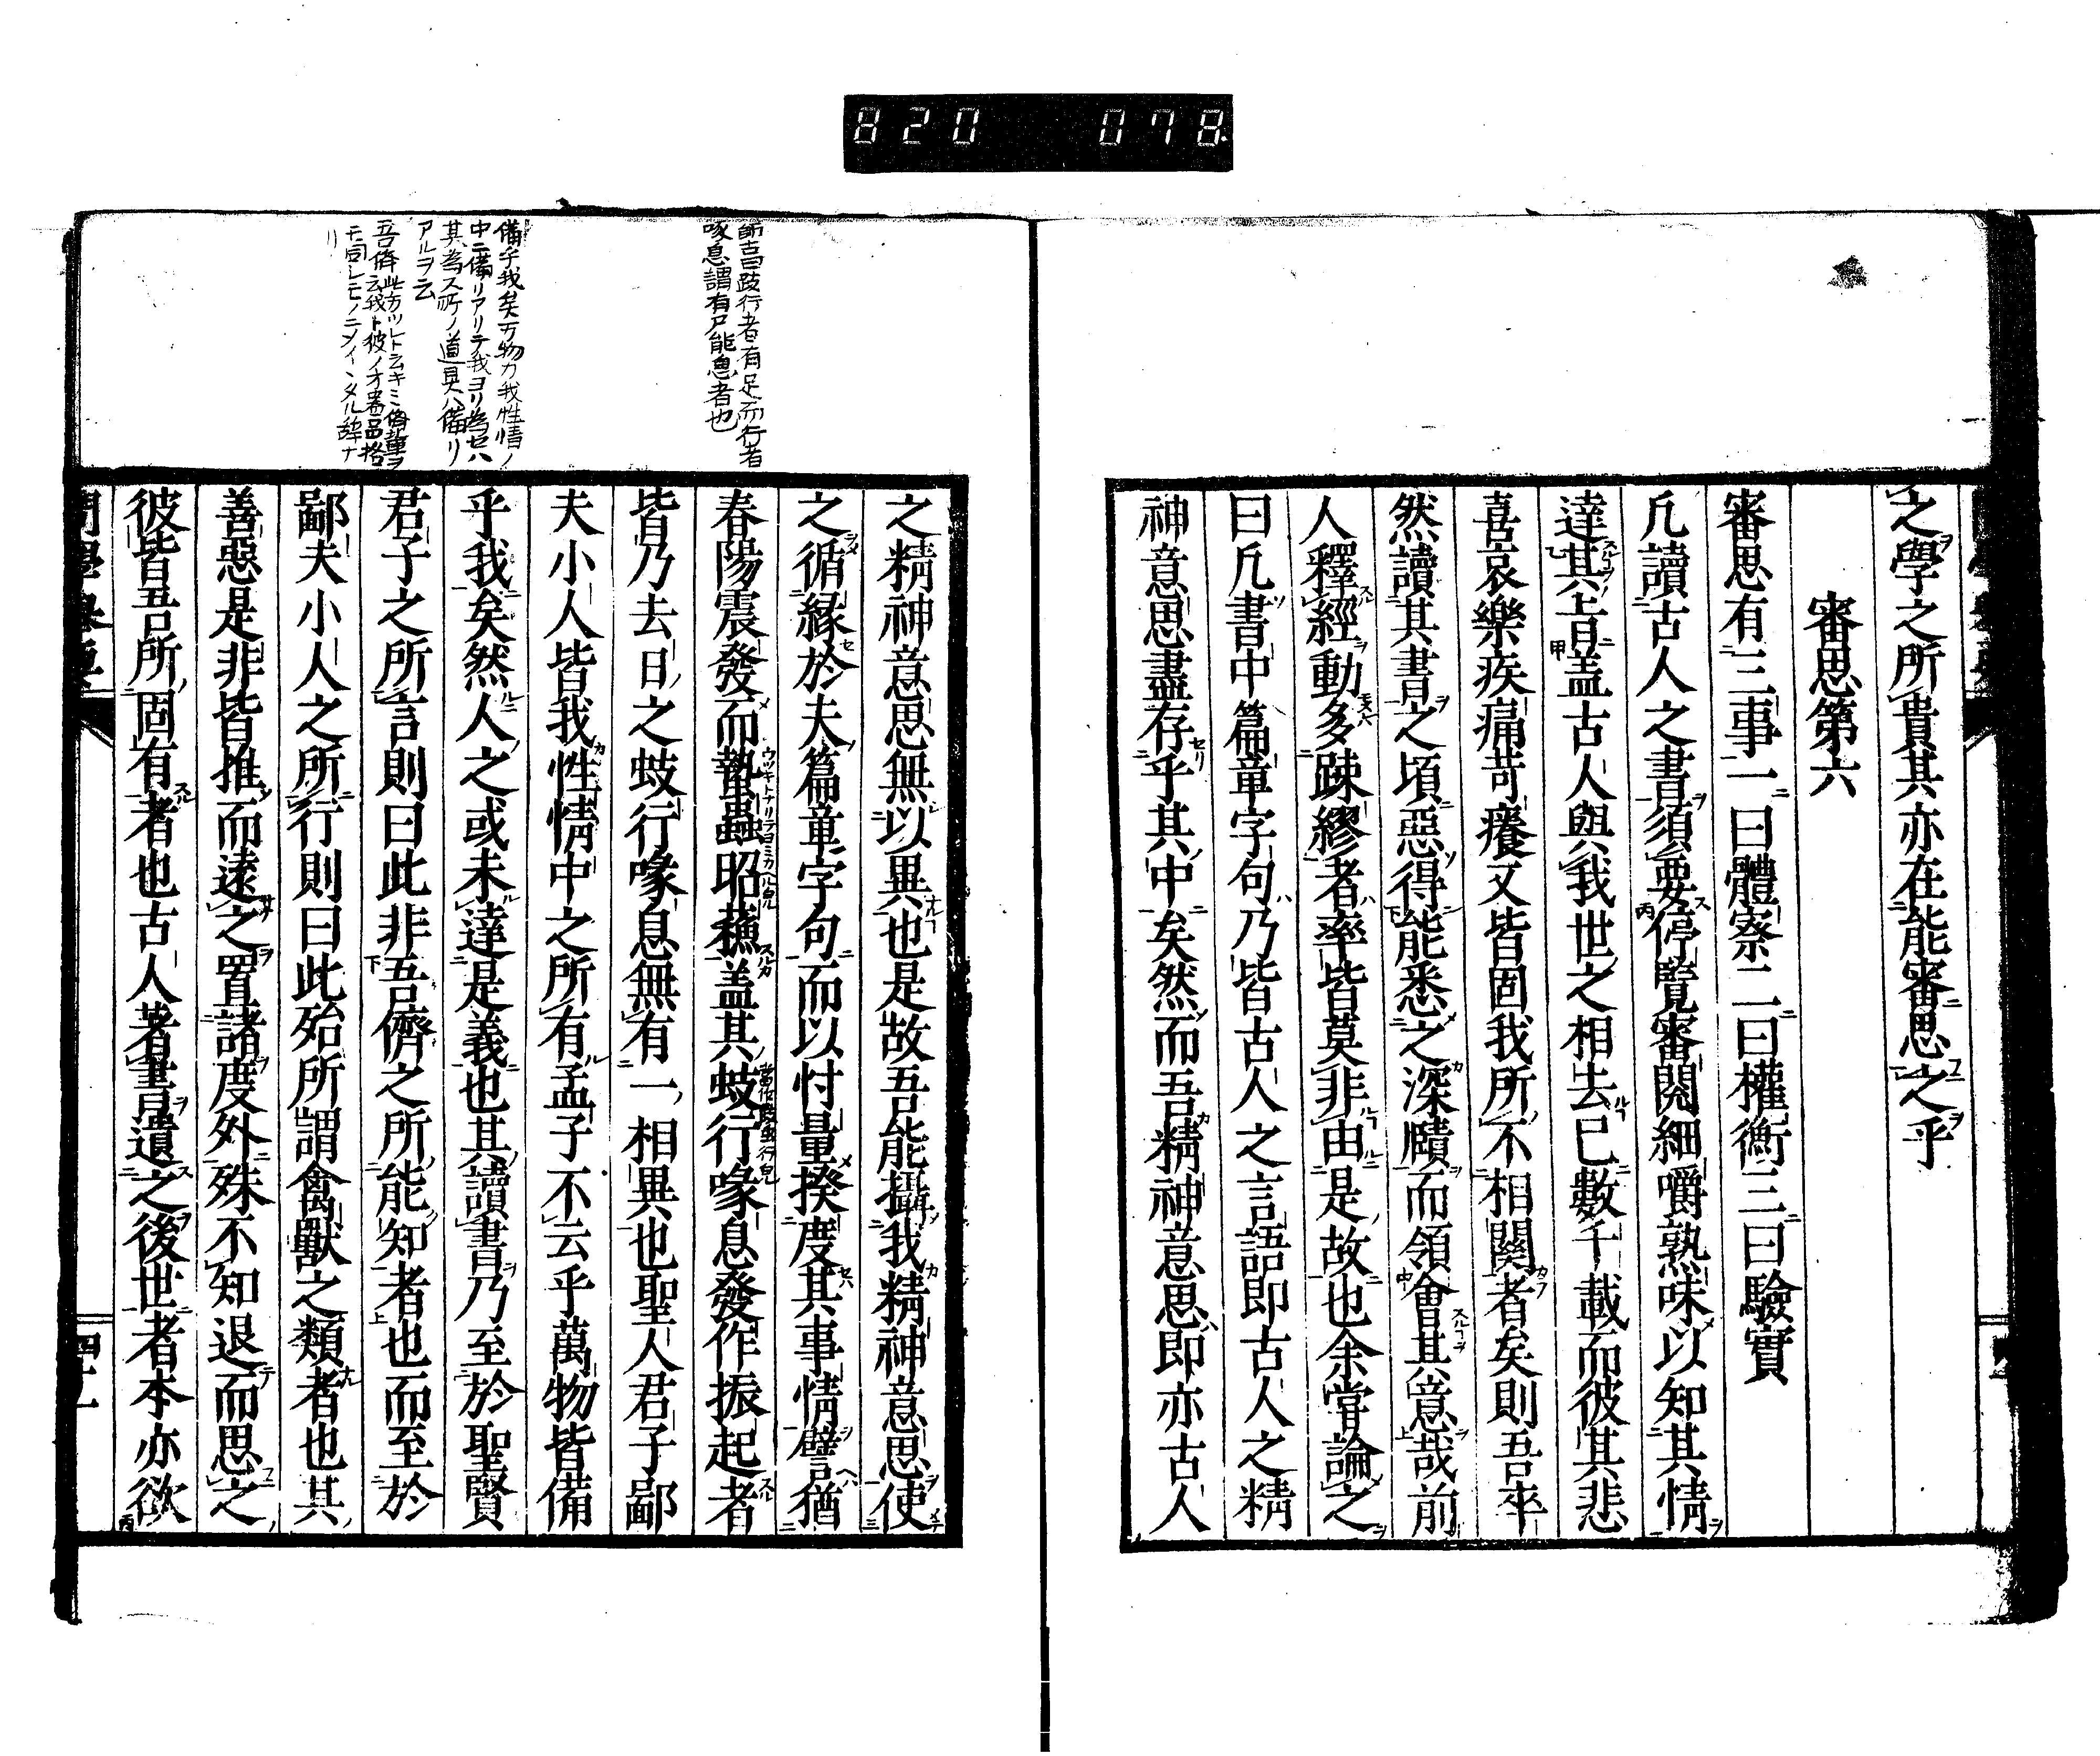 820 078
之學之所貴其亦在能審思之乎
審思第六
審思有三事一曰體察二曰權衡三曰驗實
凡讀古人之書須要停覽審閱細嚼熟味以知其情
達其旨蓋古人與我世之相去已數千載而彼其悲
喜哀樂疾痛苛癢又皆固我所不相關者矣則吾率
然讀其書之頃惡得能悉之深賾而領會其意哉前
人釋經動多踈繆者率皆莫非由是故也余嘗論之
曰凡書中篇章字句乃皆古人之言語即古人之精
神意思盡存乎其中矣然而吾精神意思即亦古人
師古曰跂行者有足而行者
喙息謂有口能息者也
備乎我矣万物カ我性情ノ
中ニ備リアリテ我ヨリ為セハ
其為ス所ノ道具ハ備リ
アルヲ云
之精神意思無以異也是故吾能攝我精神意思使
之循緣於夫篇章字句而以忖量揆度其事情譬猶
春陽震發而蟄蟲昭蘓蓋其蚑行喙息發作振起者
皆乃去日之蚑行喙息無有一相異也聖人君子鄙
夫小人皆我性情中之所有孟子不云乎萬物皆備
乎我矣然人之或未達是義也其讀書乃至於聖賢
君子之所言則曰此非吾儕之所能知者也而至於
鄙夫小人之所行則曰此殆所謂禽獸之類者也其
善惡是非皆推而遠之置諸度外殊不知退而思之
彼皆吾所固有者也古人著書遺之後世者本亦欲